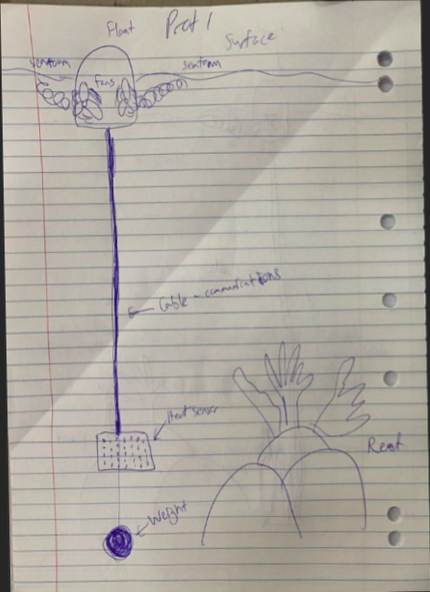 Float
Part 1
Surface
seafoam
seafoam
fans
Cable - communications
Heat sensor
Reef
Weight